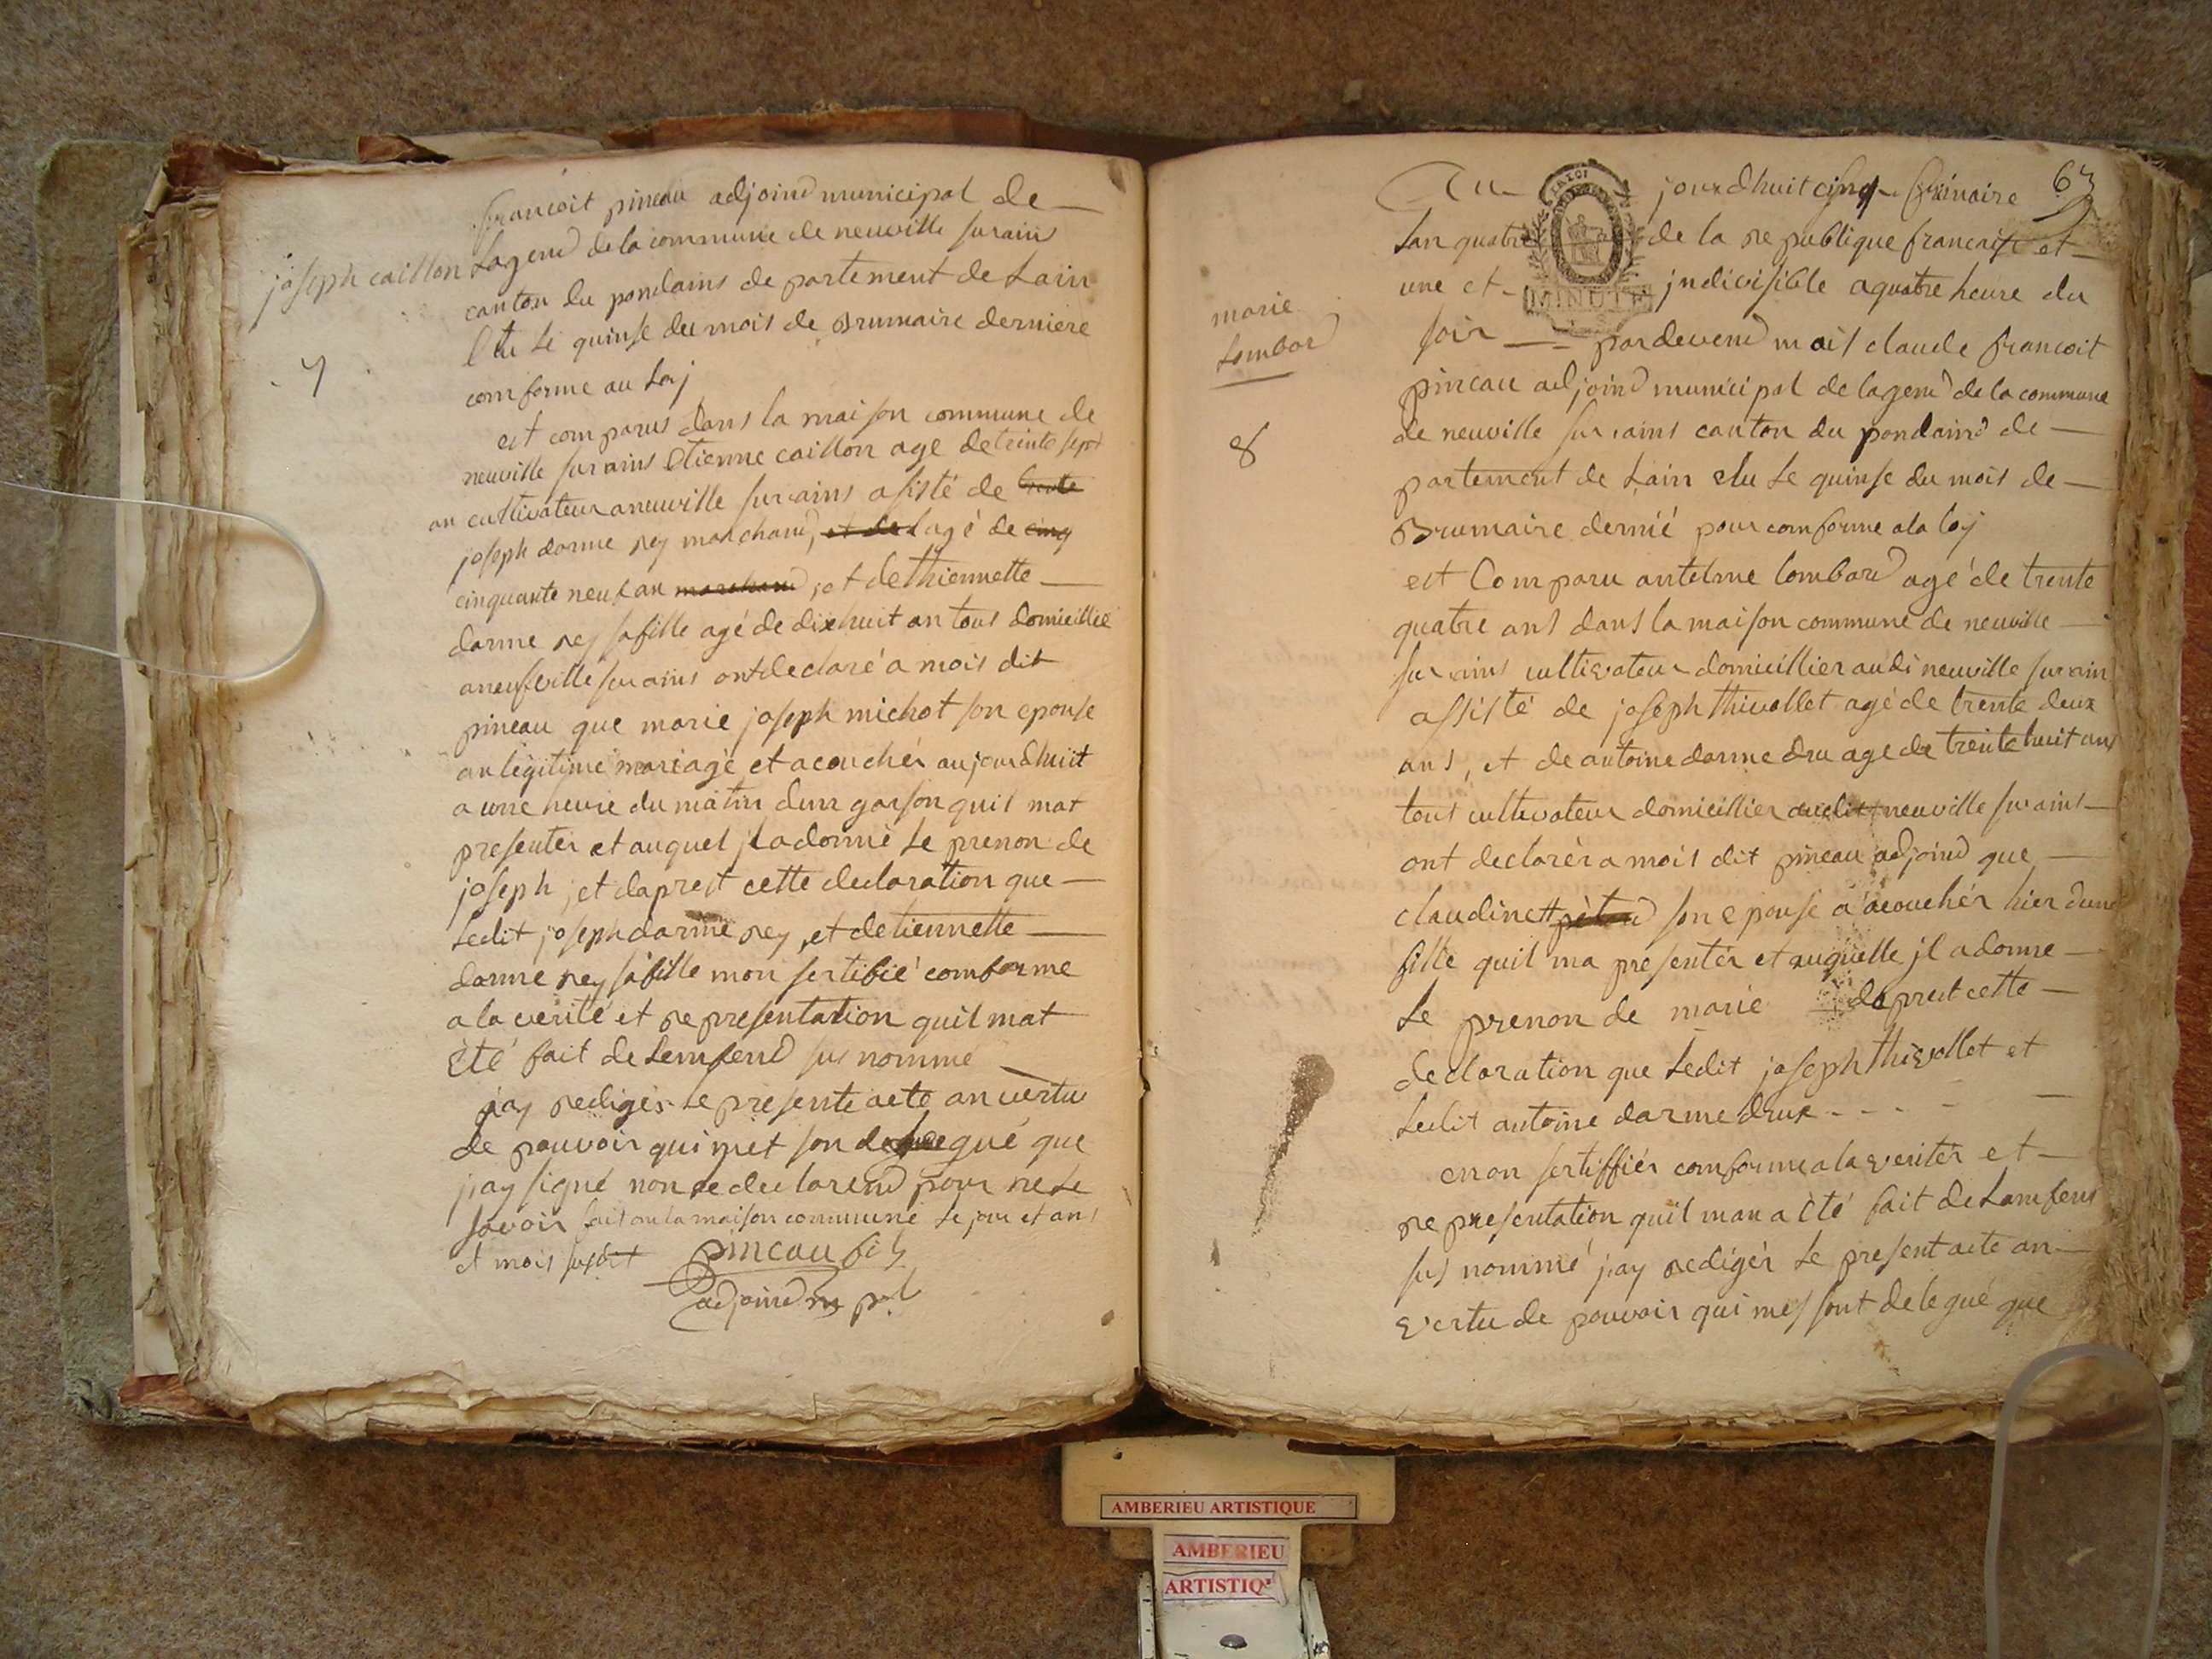 francoit pineau adjoind municipal de
joseph caillon
Lagend de la commune de neuville sur ains
canton du pondains de partement de Lain
Elu Le quinse du mois de Brumaire derniere
comforme au Loj
7
est comparus dans la maison commune de
neuville sur ains Etienne caillon age de trinte sept
an cultivateur a neuville sur ains asisté de
joseph darme rey marchand, et de Lagé de cinq
cinquante neuf an marchand, et de thiennette
darme rey sa fille agé de dixhuit an tous domicillié
a neufville sur ains ont declaré a mois dit
pineau que marie joseph michot son epouse
an legitime mariage et acouchér aujourdhuit
a une heure du matin dun garson quil mat
presentér et auquel jl a donné Le prenon de
joseph, et daprest cette declaration que
Ledit joseph darme rey, et de tiennette
darme rey sa fille mon sertifié comforme
a la verité et representation quil mat
Eté fait de Lemfend sus nommé
jay redigér Le presente acte an vertu
de pouvoir qui met son de gué que
jay signé non de declarend pour ne Le
savoir fait an la maison commune Le jour et ans
et mois susdit pineau fils
adjoind m pal
63
Au jourdhuit cinq frinaire
Lan quatre de la republique francaise et
une et jndivisible a quatre heure du
MINUTE
soir par devend mois claude francoit
marie
Lombard
pineau adjoind municipal de lagend de la commune
de neuville sur ains canton du pondaind de
8
partement de Lain elu Le quinse du mois de
Brumaire dernié pour comforme a la loj
est Comparu antelme lombard agé de trente
quatre ans dans la maison commune de neuville
sur ains cultivateur domicillier audi neuville sur ain
assisté de joseph thivollet agé de trente deux
ans, et de antoine darme dru age de trente huit ans
tous cultivateur domicillier audit neuville sur ains
ont declarér a mois dit pineau adjoind que
claudinett son epouse a acouchér hier dune
fille quil ma presentér et auquelle jl a donne
Le prenon de marie daprest cette
declaration que Ledit joseph thivollet et
Ledit antoine darme drux
cmon sertiffiér comforme a la veritér et
representation quil man a Eté fait de Lamfend
sus nommé jay redigér Le present acte an
vertu de pouvoir qui mes sont de legué que
AMBERIEU ARTISTIQUE
AMBERIEU
ARTISTIQ